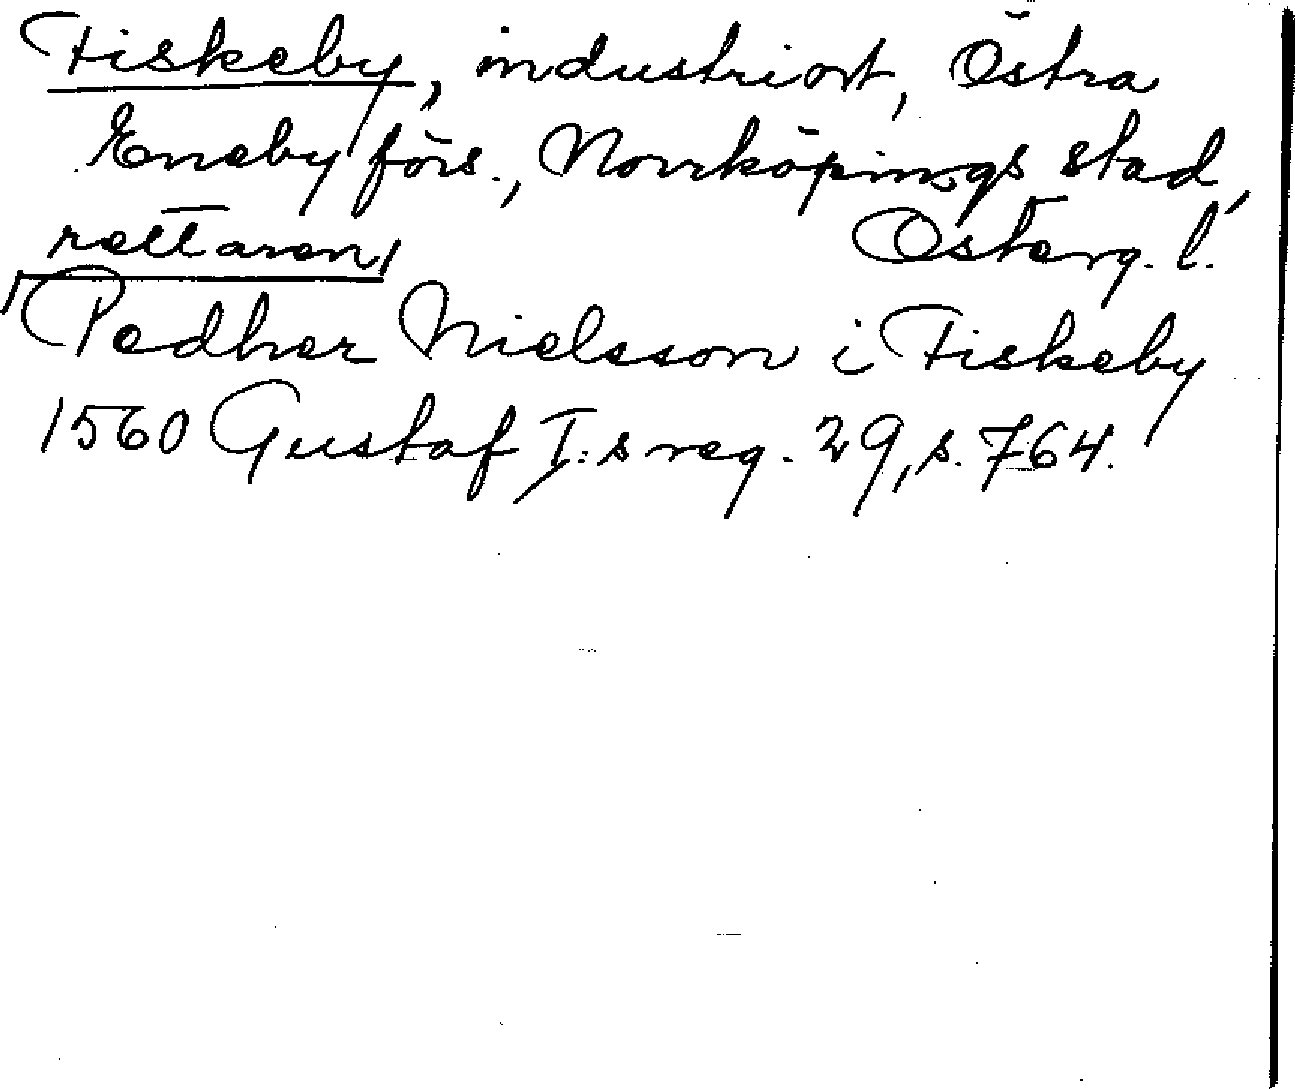 Fiskeby, industriort, Östra
Eneby förs., Norrköpings stad,
rettaren, Österg. l.
Pedher Nielsson i Fiskeby
1560 Gustaf I:s reg. 29, s. 764.